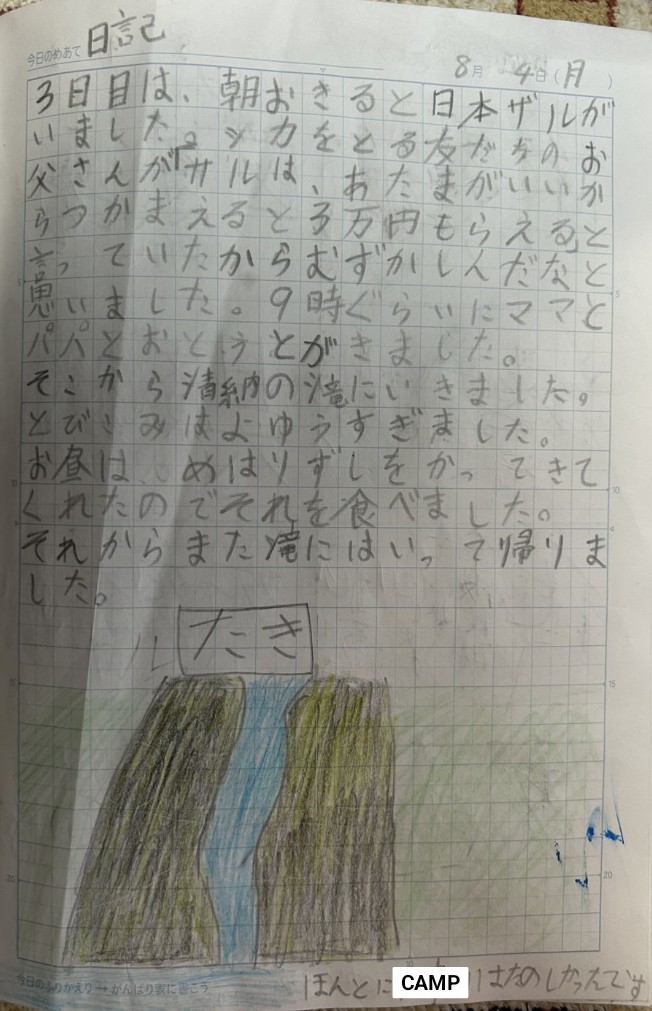 今日のめあて 日記
8月 4日(月)
3日目は、朝おきると日本ザルが
いました。シカをとる友だちのお
父さんが「サルは、あたまがいいか
らつかまえると3万円もらえる」と
言っていたからむずかしんだなと
思いました。9時ぐらいにママと
パパとおとうとがきました。
そこから清納の滝にいきました。
とびこみはよゆうすぎました。
お昼は、めはりずしをかってきて
くれたのでそれを食べました。
それからまた滝にはいって帰りま
した。
たき
ル
5
5
10
10
15
15
20
20
今日のふりかえり→がんばり表に書こう
ほんとに CAMP はたのしかったです